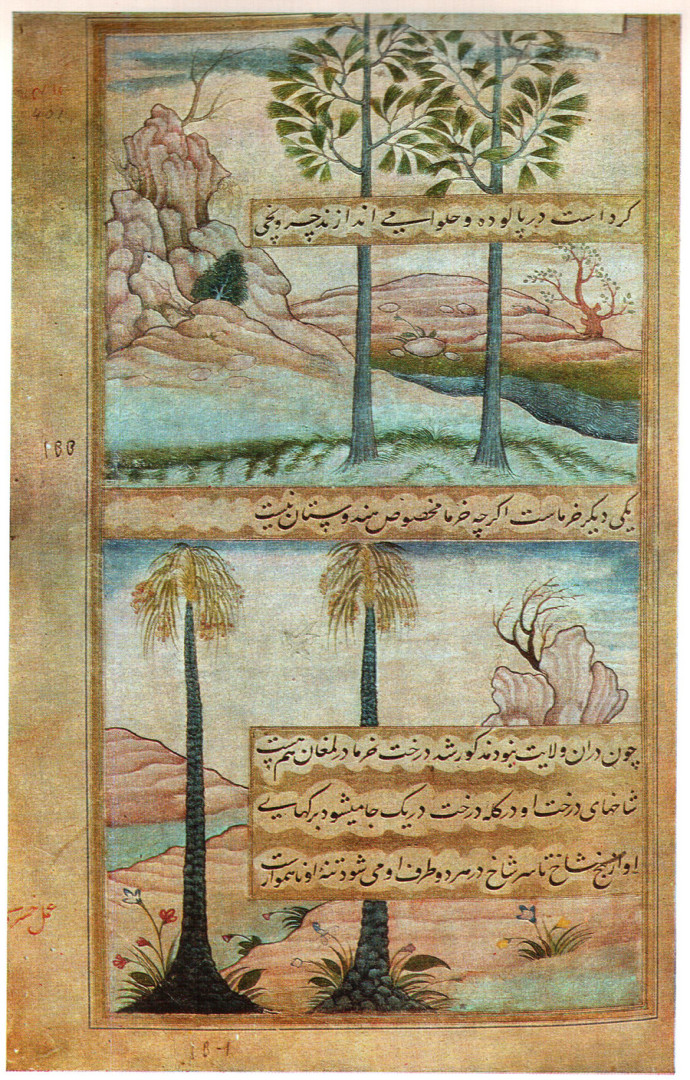 کرد است در پالوده و حلوا مے اندازند چرونجی
یکی دیگر خرماست اگرچه خرما مخصوص هندوستان نیست
چون دران ولایت نبود مذکور شد درخت خرما در لمغان هم هست
شاخهای درخت او در کله درخت در یک جا میشود برگهایے
او از بیخ شاخ تا سر شاخ در هر دو طرف او می شود تنهٔ او ناهموارست
عمل